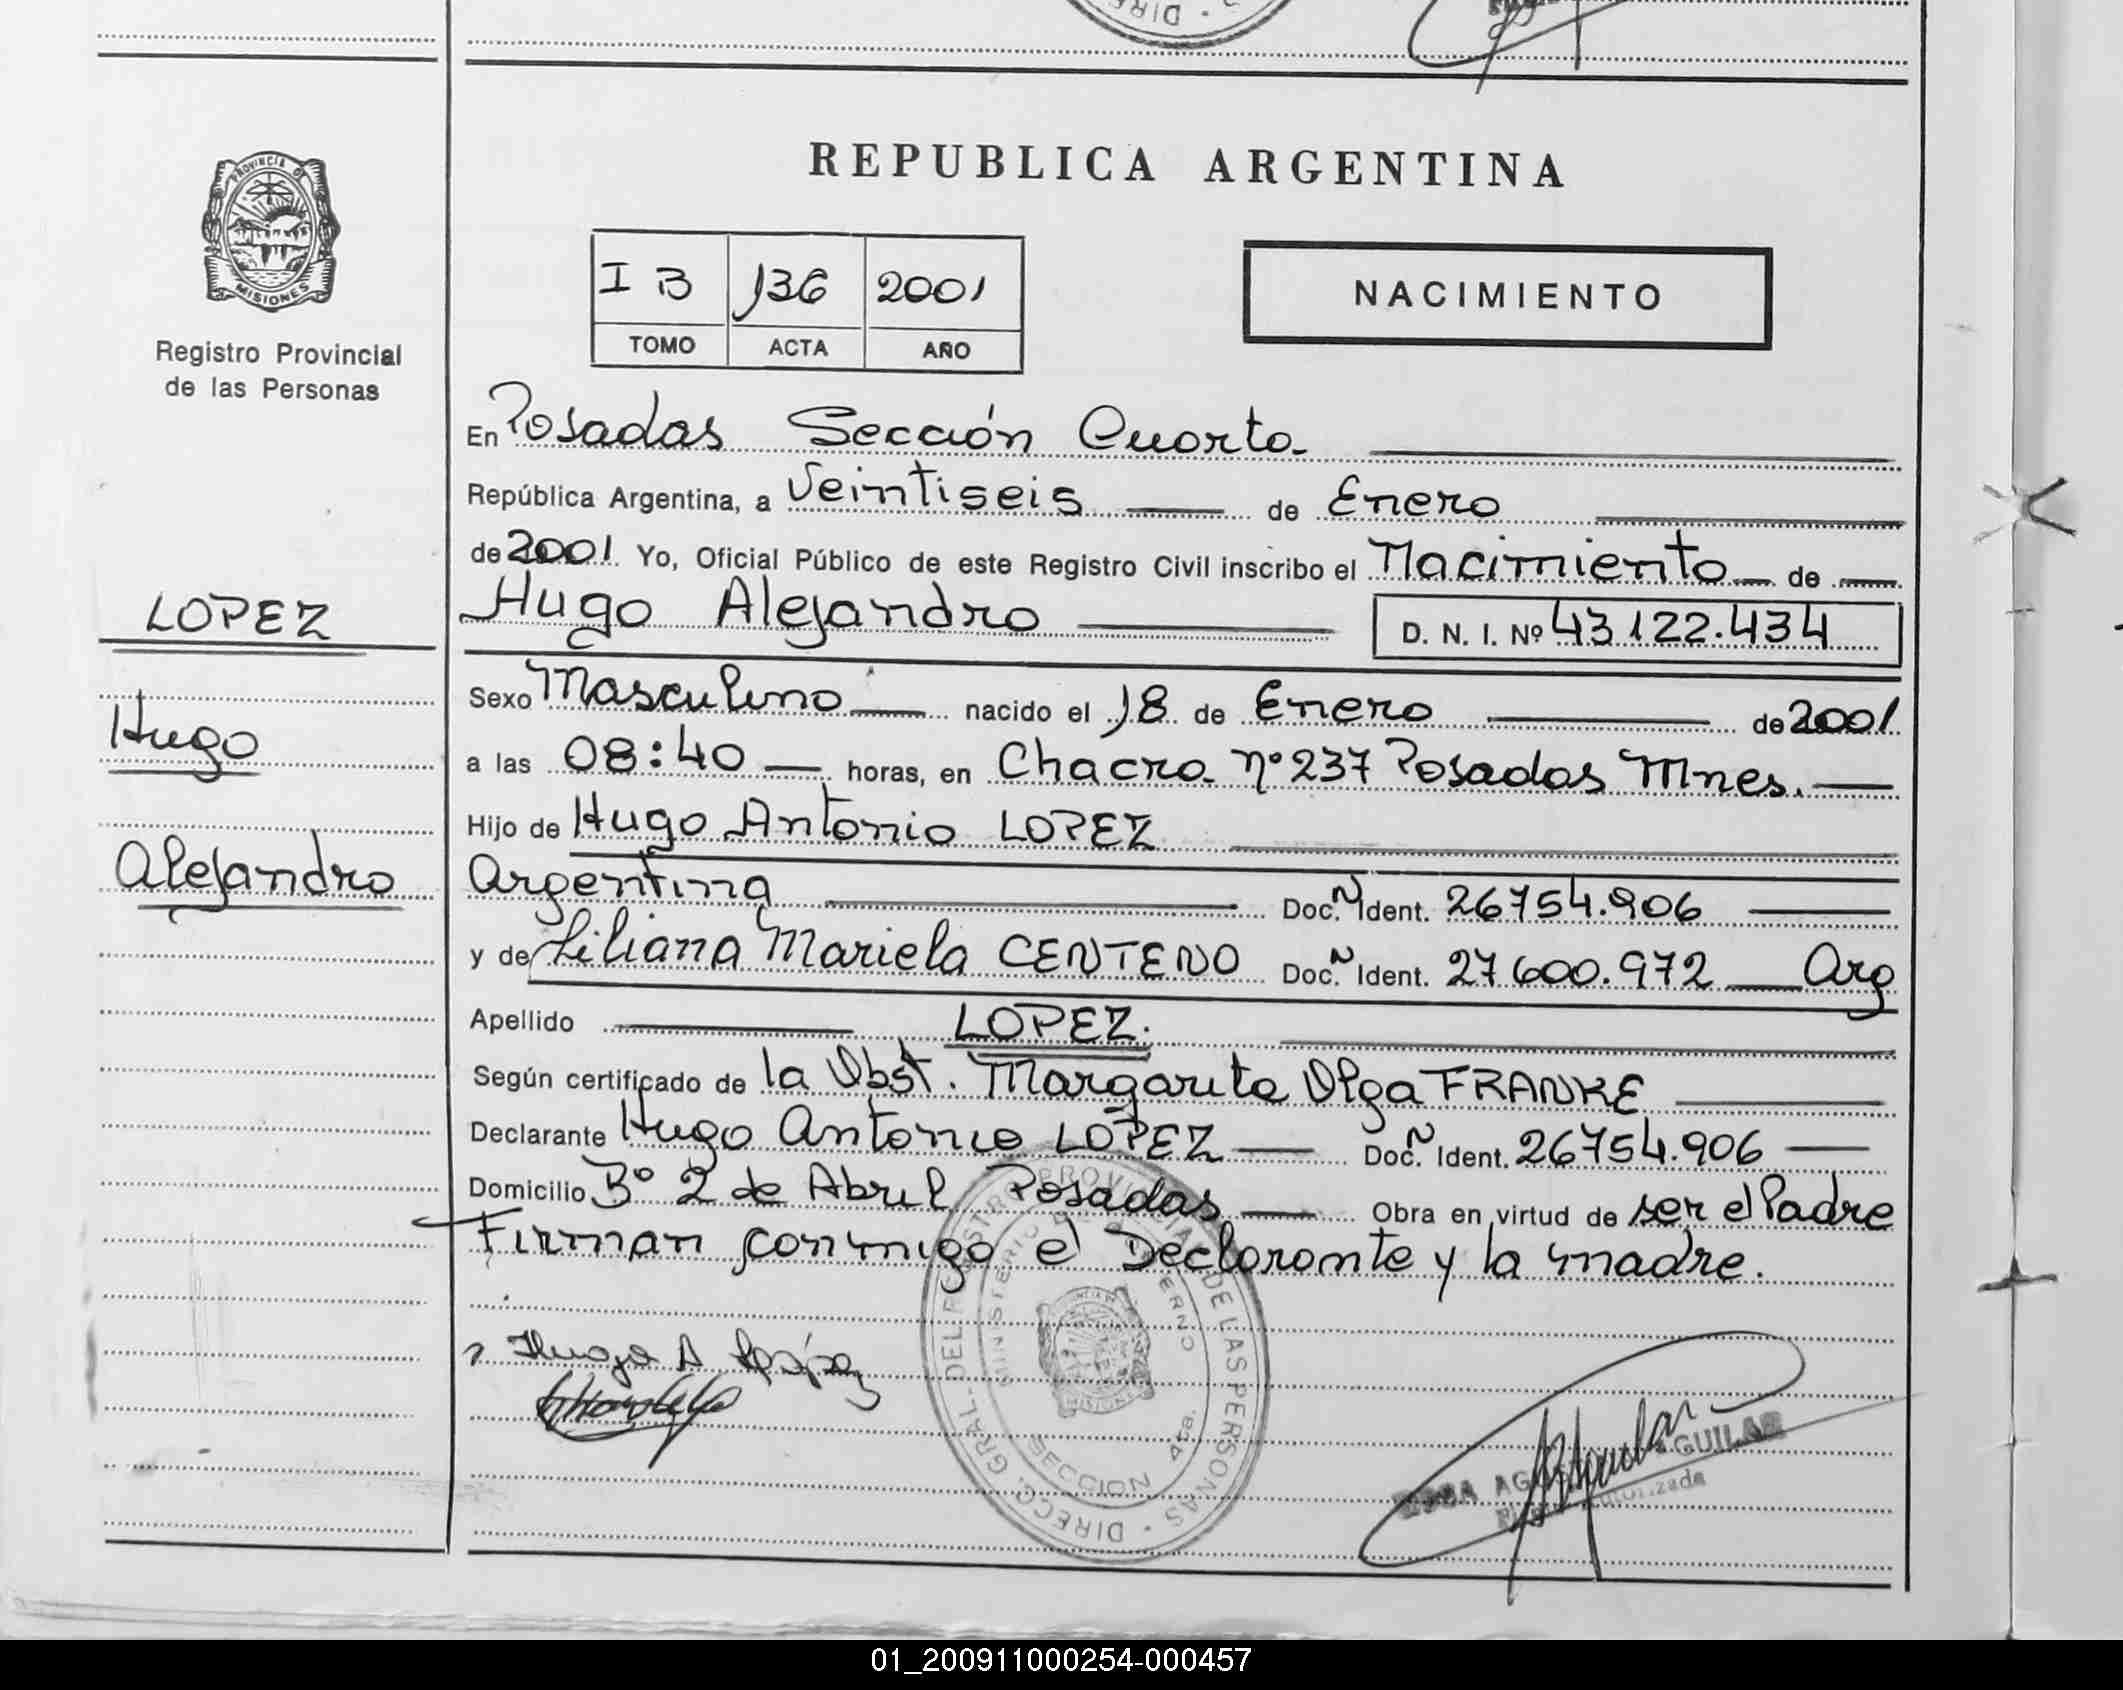 REPUBLICA ARGENTINA
PROVINCIA DE
MISIONES
Registro Provincial
de las Personas
I B 136 2001
TOMO ACTA AÑO
NACIMIENTO
En Posadas Sección Cuarta
República Argentina, a Veintiseis de Enero
de 2001 Yo, Oficial Público de este Registro Civil inscribo el Nacimiento de
Hugo Alejandro D. N. I. Nº 43.122.434
LOPEZ
Hugo
Alejandro
Sexo Masculino nacido el 18 de Enero de 2001
a las 08:40 horas, en Chacra nº 237 Posadas Mnes.
Hijo de Hugo Antonio LOPEZ
Argentina Doc. N Ident. 26754.906
y de Liliana Mariela CENTENO Doc. N Ident. 27600.972 Arg
Apellido LOPEZ.
Según certificado de la Obst. Margarita Olga FRANKE
Declarante Hugo Antonio LOPEZ Doc. N Ident. 26754.906
Domicilio Bº 2 de Abril Posadas Obra en virtud de ser el Padre
Firman conmigo el Declarante y la madre.
Hugo A López
DIRECC. GRAL. DEL REGISTRO PROVINCIAL DE LAS PERSONAS
MINISTERIO DE GOBIERNO
SECCION 4ta.
MISIONES
AGUILAR
01_200911000254-000457